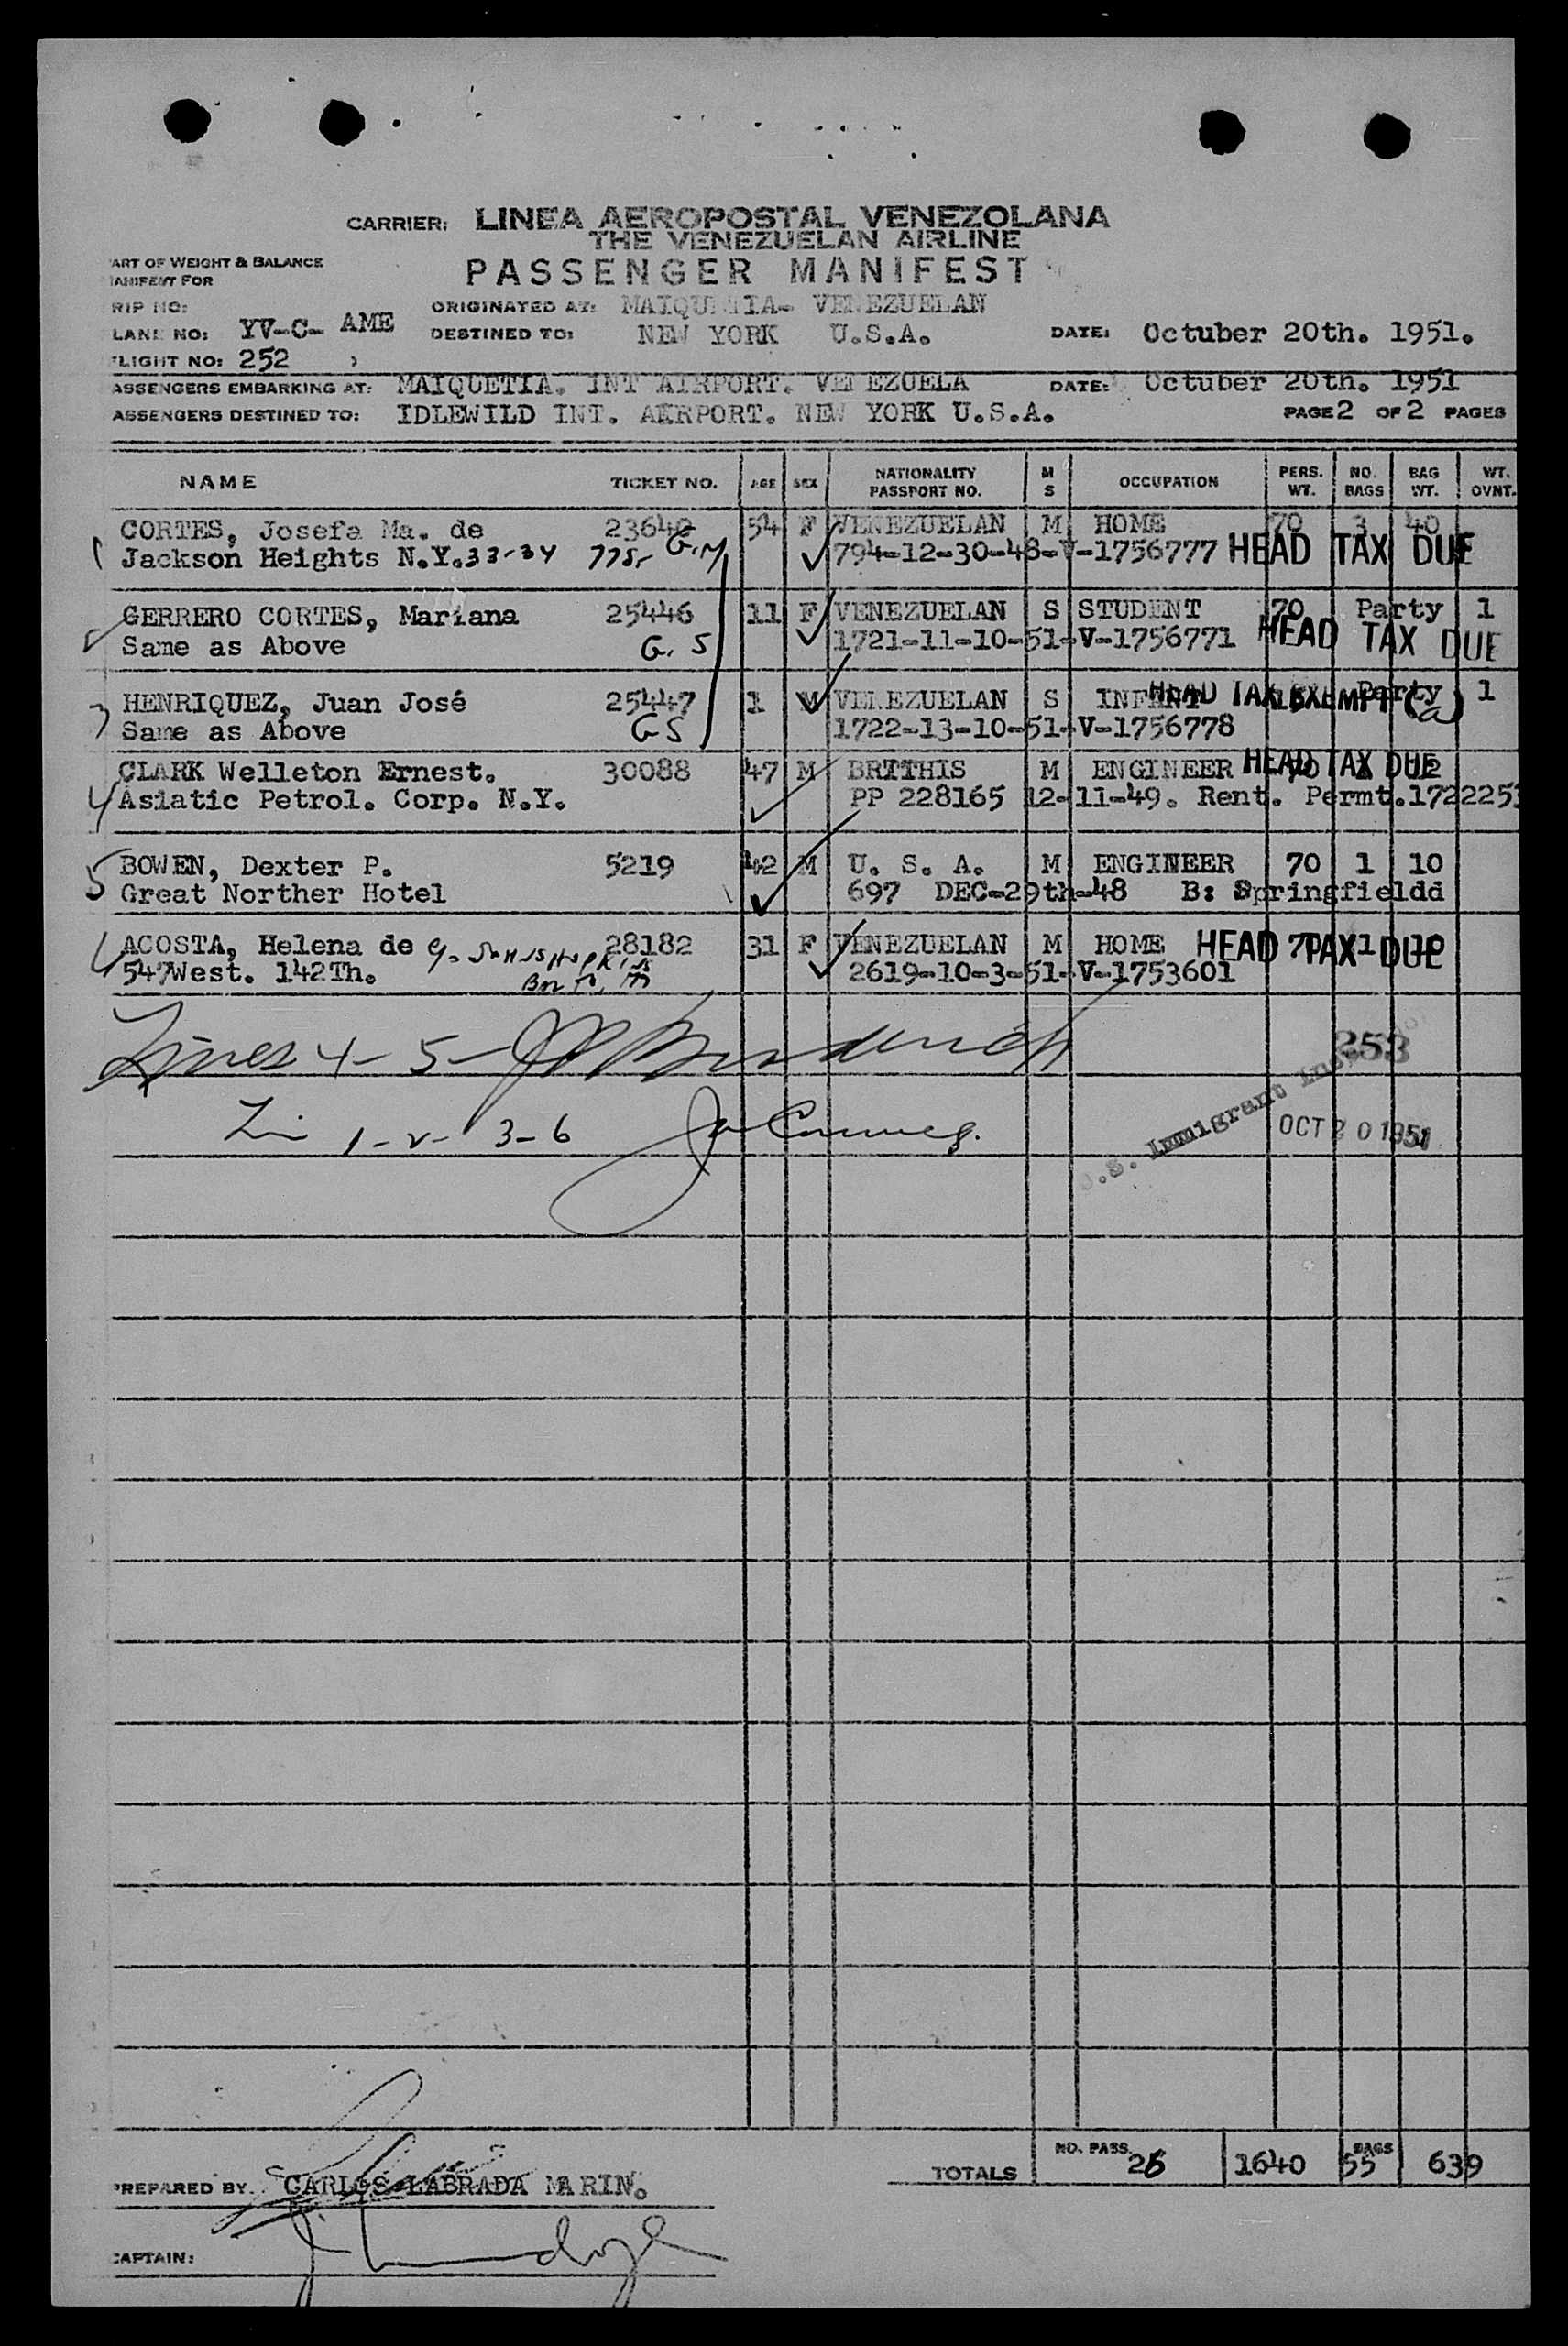 CARRIER: LINEA AEROPOSTAL VENEZOLANA
THE VENEZUELAN AIRLINE
ART OF WEIGHT & BALANCE
ANIFEST FOR
PASSENGER MANIFEST
RIP NO:
ORIGINATED AT: MAIQUETIA- VENEZUELAN
LANE NO: YV-C- AME
DESTINED TO: NEW YORK U.S.A.
DATE: Octuber 20th. 1951.
LIGHT NO: 252
ASSENGERS EMBARKING AT: MAIQUETIA. INT AIRPORT. VENEZUELA DATE: Octuber 20th. 1951
ASSENGERS DESTINED TO: IDLEWILD INT. AIRPORT. NEW YORK U.S.A. PAGE 2 OF 2 PAGES
NAME TICKET NO. AGE SEX NATIONALITY PASSPORT NO. M S OCCUPATION PERS. WT. NO. BAGS BAG WT. WT. OVNT.
CORTES, Josefa Ma. de 23640 54 F VENEZUELAN M HOME 70 3 40
1 Jackson Heights N.Y. 33-34 G.M 794-12-30-48-V-1756777 HEAD TAX DUE
GERRERO CORTES, Mariana 25446 11 F VENEZUELAN S STUDENT 70 Party 1
Same as Above G. S 1721-11-10-51-V-1756771 HEAD TAX DUE
HENRIQUEZ, Juan José 25447 1 VENEZUELAN S INFANT HEAD TAX EXEMPT (a) Party 1
3 Same as Above GS 1722-13-10-51-V-1756778
CLARK Welleton Ernest. 30088 47 M BRITHIS M ENGINEER HEAD TAX DUE 70
4 Asiatic Petrol. Corp. N.Y. PP 228165 12-11-49. Rent. Permt. 1722253
BOWEN, Dexter P. 5219 42 M U. S. A. M ENGINEER 70 1 10
5 Great Norther Hotel 697 DEC-29th-48 B: Springfieldd
ACOSTA, Helena de 28182 31 F VENEZUELAN M HOME 70 1 10 HEAD TAX DUE
6 547 West. 142Th. 2619-10-3-51-V-1753601
Lines 4-5-
253
U.S. Immigrant Inspector
OCT 20 1951
1-2- 3-6
TOTALS NO. PASS. 26 1640 BAGS 55 639
PREPARED BY. CARLOS LABRADA MARIN.
CAPTAIN: